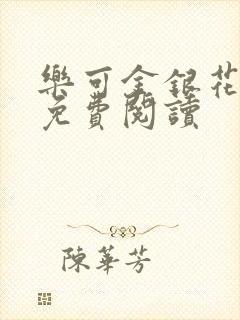 樂可金銀花
免費閱讀
陳華芳